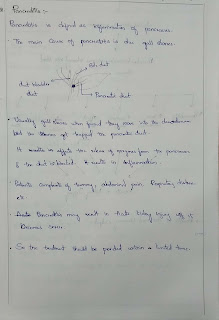 Pancreatitis :-
Pancreatitis is defined as Inflammation of pancreas.
The main cause of pancreatitis is due gall stones
bile duct
duct
Pancreatic duct
Usually gall stones when found they move into the duodenum
but the stones get trapped the pancreatic duct
It results in effects the release of enzymes from the pancreas
& the duct is blocked. It results in Inflammation.
Patients complaints of vomiting, abdominal pain, Respiratory distress
etc
Acute Pancreatitis may result in Acute kidney injury if it
Becomes severe.
So the treatment should be provided within a limited time.